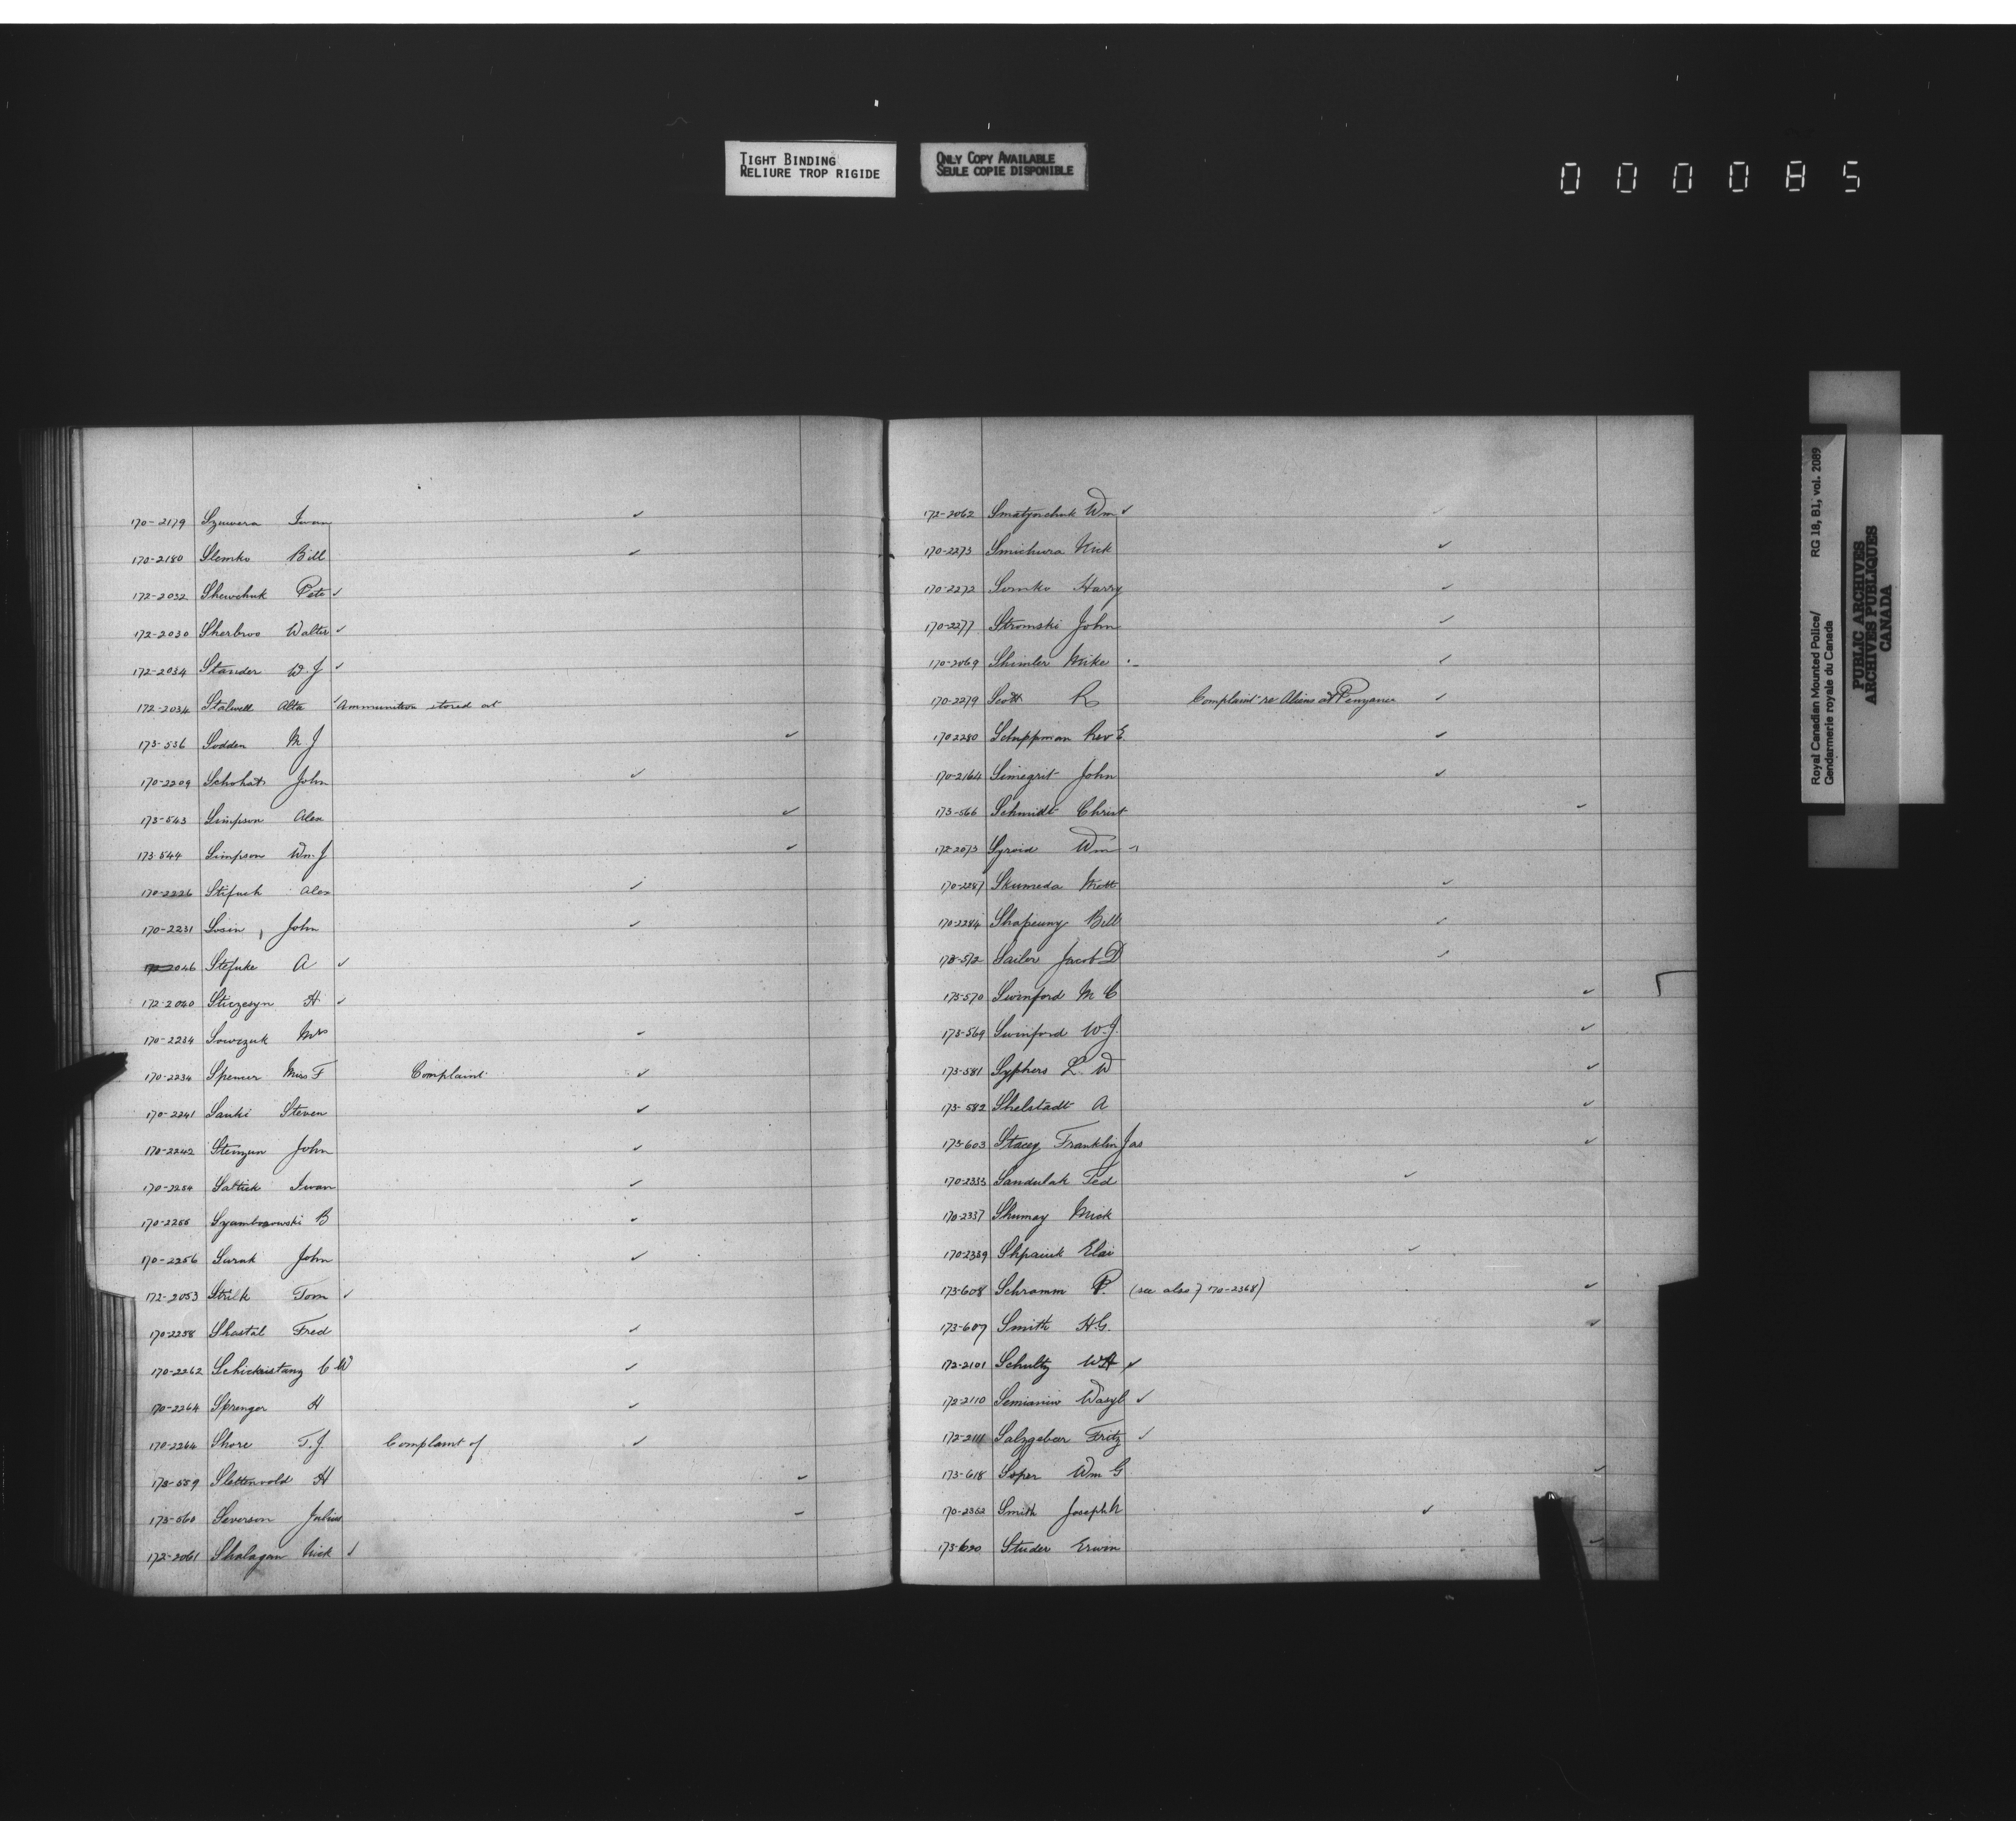 TIGHT BINDING
RELIURE TROP RIGIDE
ONLY COPY AVAILABLE
SEULE COPIE DISPONIBLE
000085
170-2179 Szuwera Iwan ✓
170-2180 Slemko Bill ✓
172-2032 Shewchuk Pete ✓
172-2030 Sherbroo Walter ✓
172-2034 Stander W. J ✓
172-2034 Stalwell Alta ✓ Ammunition stored at
173-536 Sodden M J ✓
170-2209 Schohats John ✓
173-543 Simpson Alex ✓
173-544 Simpson Wm. J ✓
170-2226 Stifuck Alex ✓
170-2231 Sosin, John ✓
2046 Stefuke A ✓
172-2040 Stuczesyn H ✓
170-2234 Sowczuk Mrs ✓
170-2234 Spencer Miss F Complaint ✓
170-2241 Sanki Steven ✓
170-2242 Stemzun John ✓
170-2254 Saltuk Iwan ✓
170-2255 Szambrowski B ✓
170-2256 Surak John ✓
172-2053 Strilk Tom ✓
170-2258 Shastal Fred ✓
170-2262 Schickristanz C W ✓
170-2264 Sprenger H ✓
170-2264 Shore T. J. Complaint of ✓
173-559 Slettenvold H ✓
173-560 Severson Julius ✓
172-2061 Shalagan Nick ✓
172-2062 Smatjorchuk Wm ✓
170-2273 Smichura Nick ✓
170-2272 Somko Harry ✓
170-2277 Stromski John ✓
170-2069 Shimler Mike ✓
170-2279 Scott R Complaint re Aliens at ✓
170 2280 Schuppman Rev E. ✓
170-2164 Simegrit John ✓
173-566 Schmidt Christ ✓
172-2073 Syroid Wm ✓
170-2287 Skumeda Mett ✓
170-2284 Shapeuny Bill ✓
173-572 Sailer Jacob D ✓
173-570 Swinford M C ✓
173-569 Swinford W. J. ✓
173-581 Syphers L W ✓
173-582 Shelstadt A ✓
173-603 Stacey Franklin Jas ✓
170-2333 Sandulak Ted ✓
170-2337 Shumay Mick
170-2339 Shpaiuk Elai ✓
173-608 Schramm P. (see also) 170-2368) ✓
173-607 Smith H.G. ✓
172-2101 Schultz WA ✓
172-2110 Semianiw Wasyl ✓
172-2111 Salzgeber Fritz ✓
173-618 Soper Wm G ✓
170-2352 Smith Joseph N ✓
173-620 Studer Erwin ✓
Royal Canadian Mounted Police/ RG 18, B1, vol. 2089
Gendarmerie royale du Canada
PUBLIC ARCHIVES
ARCHIVES PUBLIQUES
CANADA